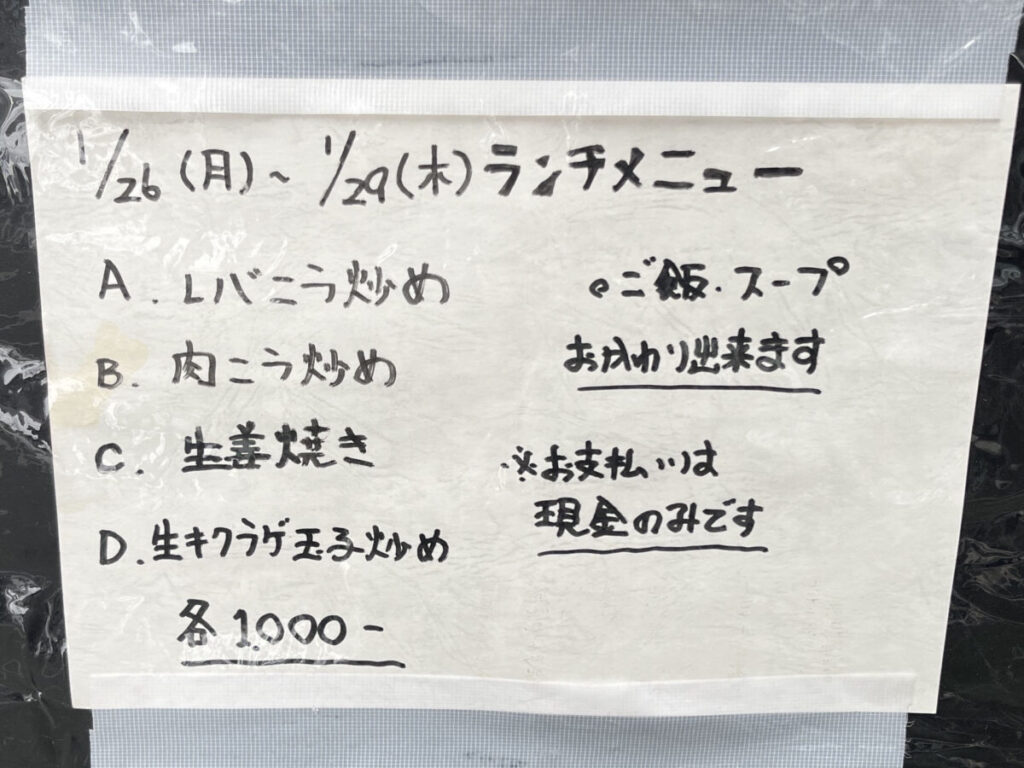 1/26(月)~1/29(木)ランチメニュー
A.レバニラ炒め
B.肉ニラ炒め
C.生姜焼き
D.生キクラゲ玉子炒め
各1,000-
・ご飯・スープ
おかわり出来ます
※お支払いは
現金のみです